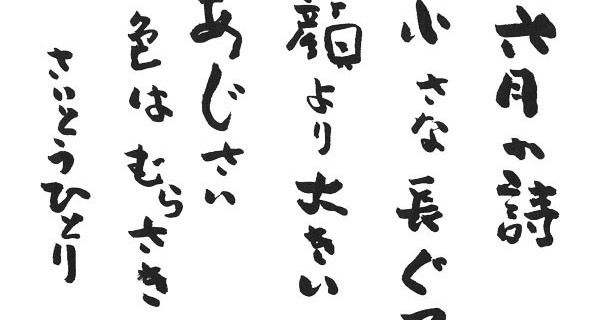 六月の詩
小さな長ぐつ
顔より大きい
あじさい
色はむらさき
さいとうひとり